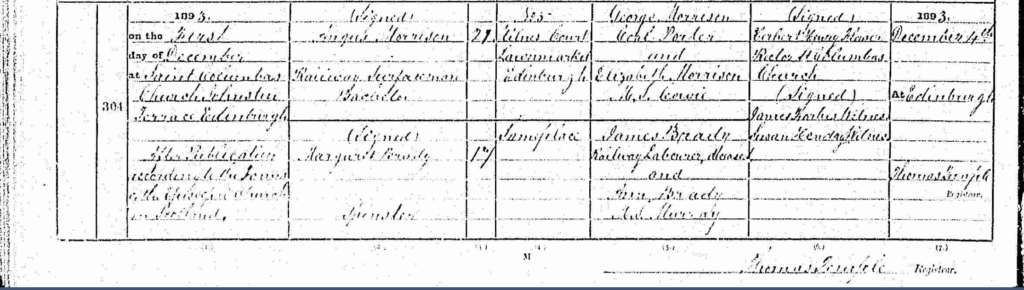 304
1893.
on the First
day of December
at Saint Columbas
Church Johnston
Terrace Edinburgh
After Publication
according to the Forms
of the Episcopal Church
in Scotland.
(Signed)
Angus Morrison
Railway Surfaceman
Bachelor
(Signed)
Margaret Brady
Spinster
21
17
Milnes Court
Lawnmarket
Edinburgh
Same place
George Morrison
Coal Porter
and
Elizabeth Morrison
M.S. Cowie
James Brady
Railway Labourer, deceased
and
Ann Brady
M.S. Murray
(Signed)
Rector St Columbas
Church
(Signed)
James Forbes Witness
Susan Hendry Witness
1893.
December 4th
At Edinburgh
Thomas Temple
Registrar.
(2.)
(3.)
(4.)
(5.)
(6.)
(7.)
M
Thomas Temple
Registrar.